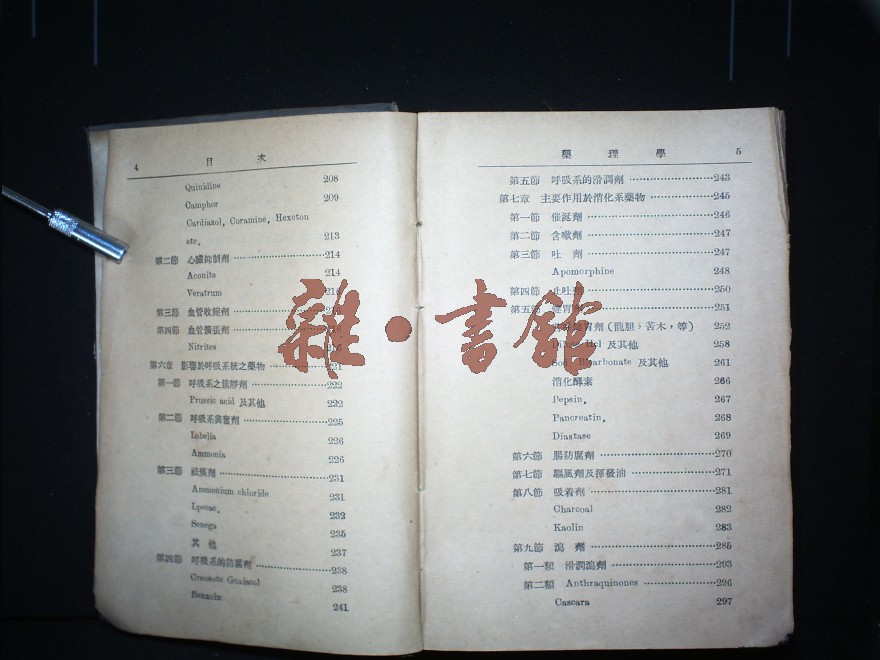 4 目次
Quinidine 208
Camphor 209
Cardiazol, Coramine, Hexeton
etc. 213
第二節 心臟抑制劑 214
Aconite 214
Veratrum
第三節 血管收縮劑
第四節 血管擴張劑
Nitrites
第六章 影響於呼吸系統之藥物
第一節 呼吸系之鎮靜劑 222
Prussic acid 及其他 222
第二節 呼吸系興奮劑 225
Lobelia 226
Ammonia 226
第三節 祛痰劑 231
Ammonium chloride 231
Lpecac. 232
Senega 235
其他 237
第四節 呼吸系的防腐劑 238
Creosote Guaiacol 238
Benzoin 241
藥理學 5
第五節 呼吸系的滑潤劑 243
第七章 主要作用於消化系藥物 245
第一節 催涎劑 246
第二節 含嗽劑 247
第三節 吐劑 247
Apomorphine 248
第四節 止吐劑 250
第五節 健胃劑 251
健胃劑(龍胆,苦木,等) 252
Hcl 及其他 258
Bicarbonate 及其他 261
消化酵素 266
Pepsin, 267
Pancreatin, 268
Diastase 269
第六節 腸防腐劑 270
第七節 驅風劑及揮發油 271
第八節 吸着劑 281
Charcoal 282
Kaolin 283
第九節 瀉劑 285
第一類 滑潤瀉劑 293
第二類 Anthraquinones 296
Cascara 297
雜·書館